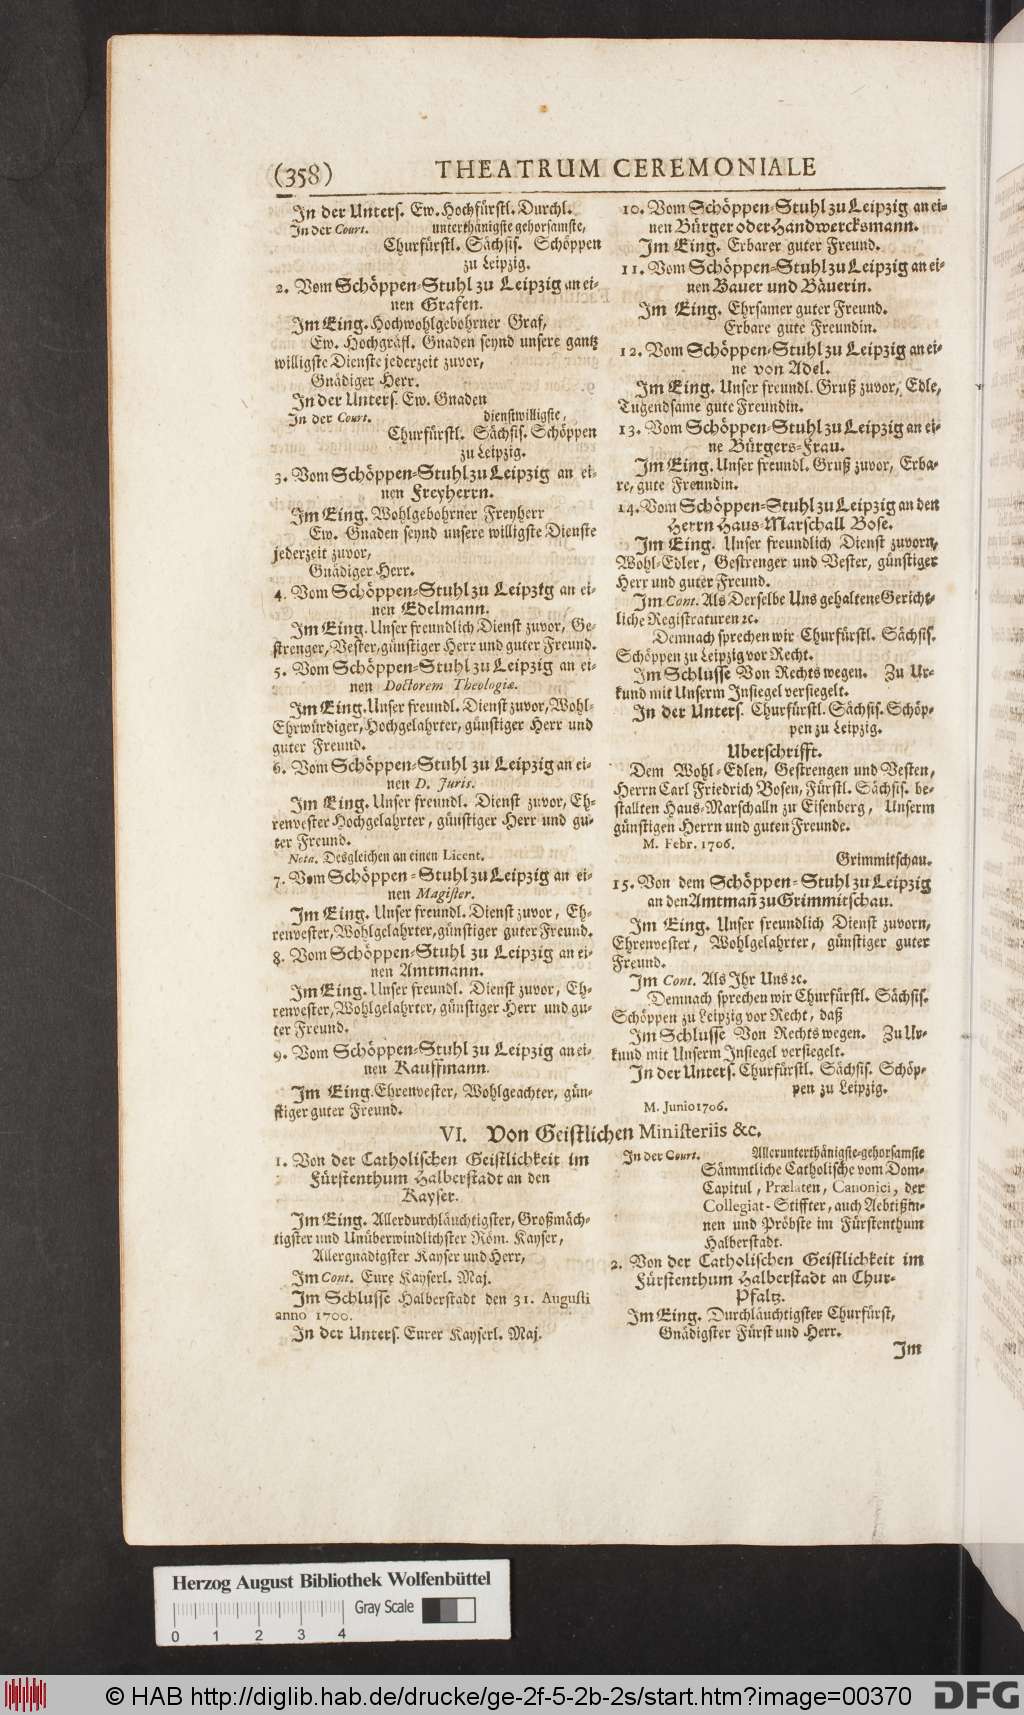 (358) THEATRUM CEREMONIALE
In der Unters. Ew. Hochfürstl. Durchl.
In der Court. unterthänigste gehorsamste,
Churfürstl. Sächsis. Schöppen
zu Leipzig.
2. Vom Schöppen-Stuhl zu Leipzig an ei-
nen Grafen.
Im Eing. Hochwohlgebohrner Graf,
Ew. Hochgräfl. Gnaden seynd unsere gantz
willigste Dienste jederzeit zuvor,
Gnädiger Herr.
In der Unters. Ew. Gnaden
In der Court. dienstwilligste,
Churfürstl. Sächsis. Schöppen
zu Leipzig.
3. Vom Schöppen-Stuhl zu Leipzig an ei-
nen Freyherrn.
Im Eing. Wohlgebohrner Freyherr
Ew. Gnaden seynd unsere willigste Dienste
jederzeit zuvor,
Gnädiger Herr.
4. Vom Schöppen-Stuhl zu Leipzig an ei-
nen Edelmann.
Im Eing. Unser freundlich Dienst zuvor, Ge-
strenger, Vester, günstiger Herr und guter Freund.
5. Vom Schöppen-Stuhl zu Leipzig an ei-
nen Doctorem Theologiæ.
Im Eing. Unser freundl. Dienst zuvor, Wohl-
Ehrwürdiger, Hochgelahrter, günstiger Herr und
guter Freund.
6. Vom Schöppen-Stuhl zu Leipzig an ei-
nen D. Juris.
Im Eing. Unser freundl. Dienst zuvor, Eh-
renvester Hochgelahrter, günstiger Herr und gu-
ter Freund.
Nota. Desgleichen an einen Licent.
7. Vom Schöppen-Stuhl zu Leipzig an ei-
nen Magister.
Im Eing. Unser freundl. Dienst zuvor, Eh-
renvester, Wohlgelahrter, günstiger guter Freund.
8. Vom Schöppen-Stuhl zu Leipzig an ei-
nen Amtmann.
Im Eing. Unser freundl. Dienst zuvor, Eh-
renvester, Wohlgelahrter, günstiger Herr und gu-
ter Freund.
9. Vom Schöppen-Stuhl zu Leipzig an ei-
nen Kauffmann.
Im Eing. Ehrenvester, Wohlgeachter, gün-
stiger guter Freund.
10. Vom Schöppen-Stuhl zu Leipzig an ei-
nen Bürger oder Handwercksmann.
Im Eing. Erbarer guter Freund.
11. Vom Schöppen-Stuhl zu Leipzig an ei-
nen Bauer und Bäuerin.
Im Eing. Ehrsamer guter Freund.
Erbare gute Freundin.
12. Vom Schöppen-Stuhl zu Leipzig an ei-
ne von Adel.
Im Eing. Unser freundl. Gruß zuvor, Edle,
Tugendsame gute Freundin.
13. Vom Schöppen-Stuhl zu Leipzig an ei-
ne Bürgers-Frau.
Im Eing. Unser freundl. Gruß zuvor, Erba-
re, gute Freundin.
14. Vom Schöppen-Stuhl zu Leipzig an den
Herrn Haus-Marschall Bose.
Im Eing. Unser freundlich Dienst zuvorn,
Wohl-Edler, Gestrenger und Vester, günstiger
Herr und guter Freund.
Im Cont. Als Derselbe Uns gehaltene Gericht-
liche Registraturen ꝛc.
Demnach sprechen wir Churfürstl. Sächsis.
Schöppen zu Leipzig vor Recht.
Im Schlusse Von Rechts wegen. Zu Ur-
kund mit Unserm Insiegel versiegelt.
In der Unters. Churfürstl. Sächsis. Schöp-
pen zu Leipzig.
Uberschrifft.
Dem Wohl-Edlen, Gestrengen und Vesten,
Herrn Carl Friedrich Bosen, Fürstl. Sächsis. be-
stallten Haus-Marschalln zu Eisenberg, Unserm
günstigen Herrn und guten Freunde.
M. Febr. 1706.
Grimmitschau.
15. Von dem Schöppen-Stuhl zu Leipzig
an den Amtmañ zu Grimmitschau.
Im Eing. Unser freundlich Dienst zuvorn,
Ehrenvester, Wohlgelahrter, günstiger guter
Freund.
Im Cont. Als Ihr Uns ꝛc.
Demnach sprechen wir Churfürstl. Sächsis.
Schöppen zu Leipzig vor Recht, daß
Im Schlusse Von Rechts wegen. Zu Ur-
kund mit Unserm Insiegel versiegelt.
In der Unters. Churfürstl. Sächsis. Schöp-
pen zu Leipzig.
M. Junio 1706.
VI. Von Geistlichen Ministeriis &c.
1. Von der Catholischen Geistlichkeit im
Fürstenthum Halberstadt an den
Kayser.
Im Eing. Allerdurchläuchtigster, Großmäch-
tigster und Unüberwindlichster Röm. Kayser,
Allergnädigster Kayser und Herr,
Im Cont. Eure Kayserl. Maj.
Im Schlusse Halberstadt den 31. Augusti
anno 1700.
In der Unters. Eurer Kayserl. Maj.
In der Court. Allerunterthänigste-gehorsamste
Sämmtliche Catholische vom Dom-
Capitul, Prælaten, Canonici, der
Collegiat-Stiffter, auch Aebtißin-
nen und Pröbste im Fürstenthum
Halberstadt.
2. Von der Catholischen Geistlichkeit im
Fürstenthum Halberstadt an Chur-
Pfaltz.
Im Eing. Durchläuchtigster Churfürst,
Gnädigster Fürst und Herr.
Im
Herzog August Bibliothek Wolfenbüttel
Gray Scale
0 1 2 3 4
© HAB http://diglib.hab.de/drucke/ge-2f-5-2b-2s/start.htm?image=00370
DFG